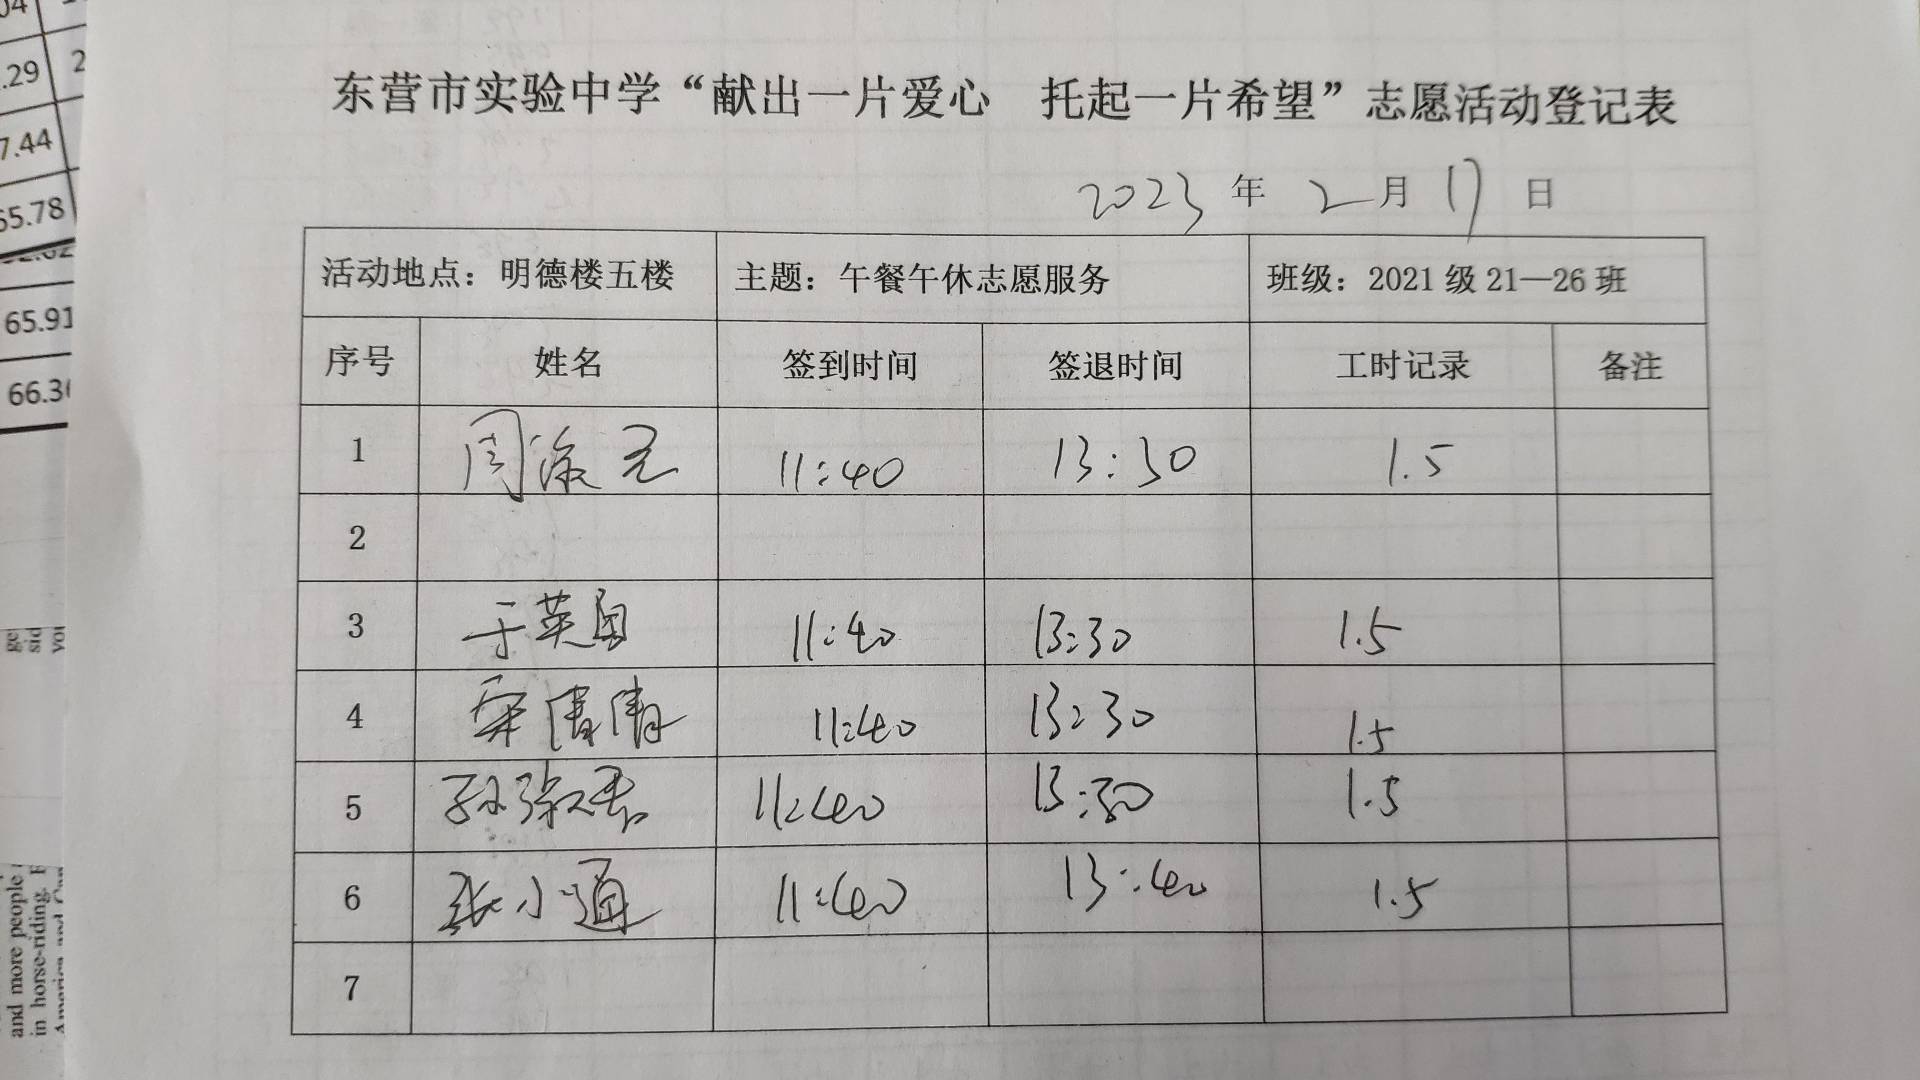 东营市实验中学“献出一片爱心 托起一片希望”志愿活动登记表
2023 年 2 月 17 日
活动地点：明德楼五楼 主题：午餐午休志愿服务 班级：2021 级 21—26 班
序号 姓名 签到时间 签退时间 工时记录 备注
1 周 11:40 13:30 1.5
2
3 于英 11:40 13:30 1.5
4 11:40 13:30 1.5
5 孙 11:40 13:30 1.5
6 张小通 11:40 13:40 1.5
7
.29 2
7.44
65.78
65.91
66.3
ge
sid
and more people
in horse-riding.